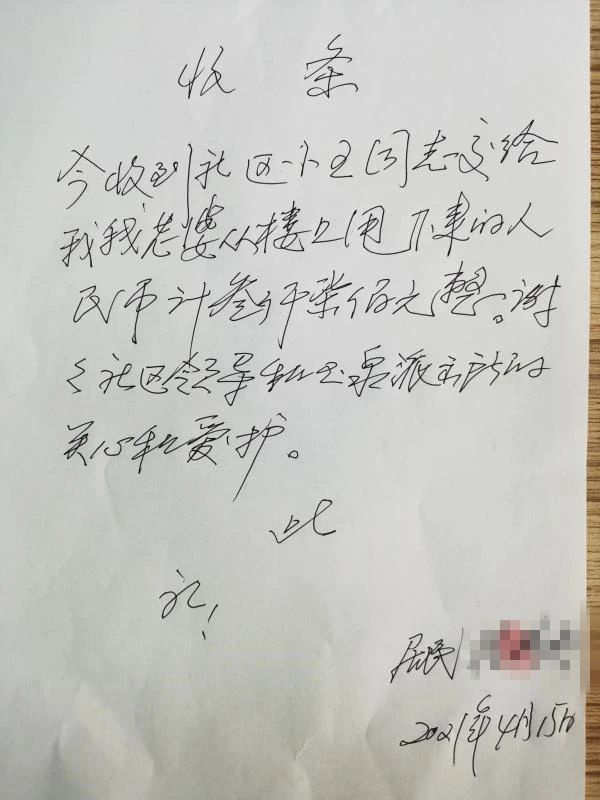 收 条
今收到社区小王同志交给
我我老婆从楼上甩下来的人
民币计叁仟柒佰元整。谢
々社区领导和玉泉派出所的
关心和爱护。
此
礼!
居民
2021年4月15日